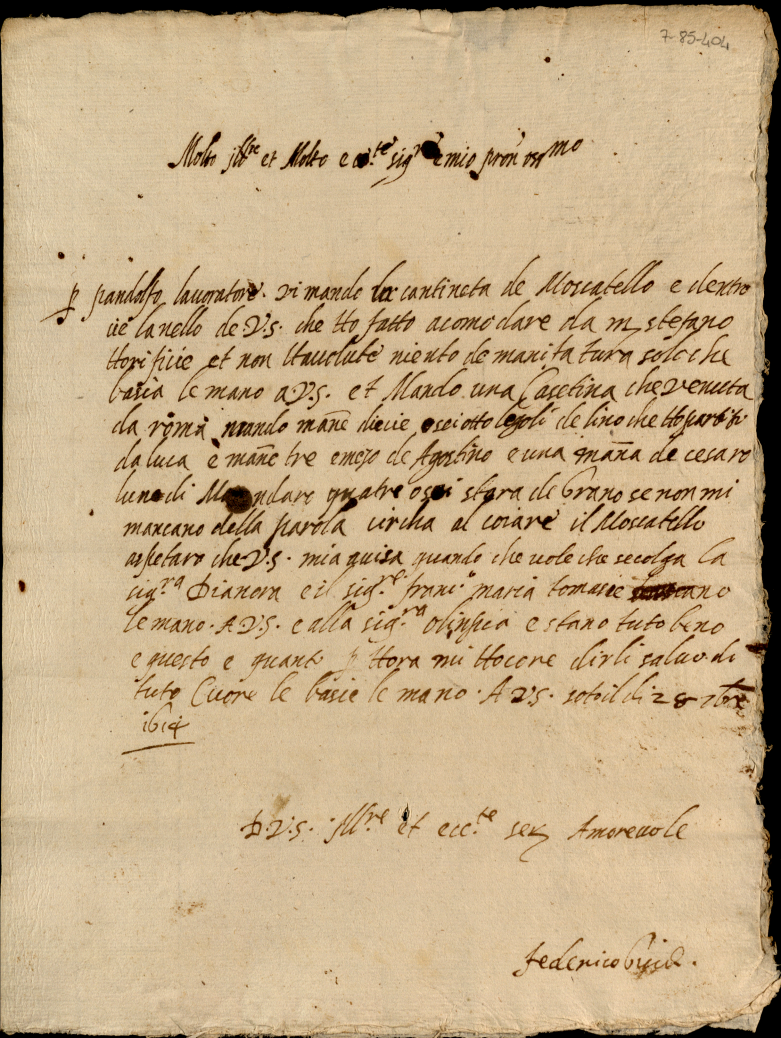 7-85-404
Molto Ill.re et Molto ecc.te sig.re e mio pron oss.mo
p pandolfo lavoratore. vi mando la cantineta de Moscatello e dentro
vie lanello de V.S. che tto fatto acomodare da m stefano
ttorifície et non ttavolute niento de manifatura solo che
basia le mano a V.S. et Mando una Casetina che venuta
da roma mando mane diecie o sei otto de lino che tto
da luca e mane tre emezo de Agostino e una mana de cesaro
lunedi Mandaro quatre o sei stara de Grano se non mi
mancano della parola circha al coiare il Moscatello
aspetaro che V.S. mia quisa quando che vole che se colga la
sig.ra Dianora e il sig.re franc.o maria tomasie
le mano. A V.S. e alla sig.ra olinpia e stano tuto beno
e questo e quanto p ttora mi ttocore dirli salvo di
tuto Cuore le basie le mano. A V.S. soto il di 28 7bre
1614
D.V.S. Ill.re et ecc.te ser Amorevole
Federico